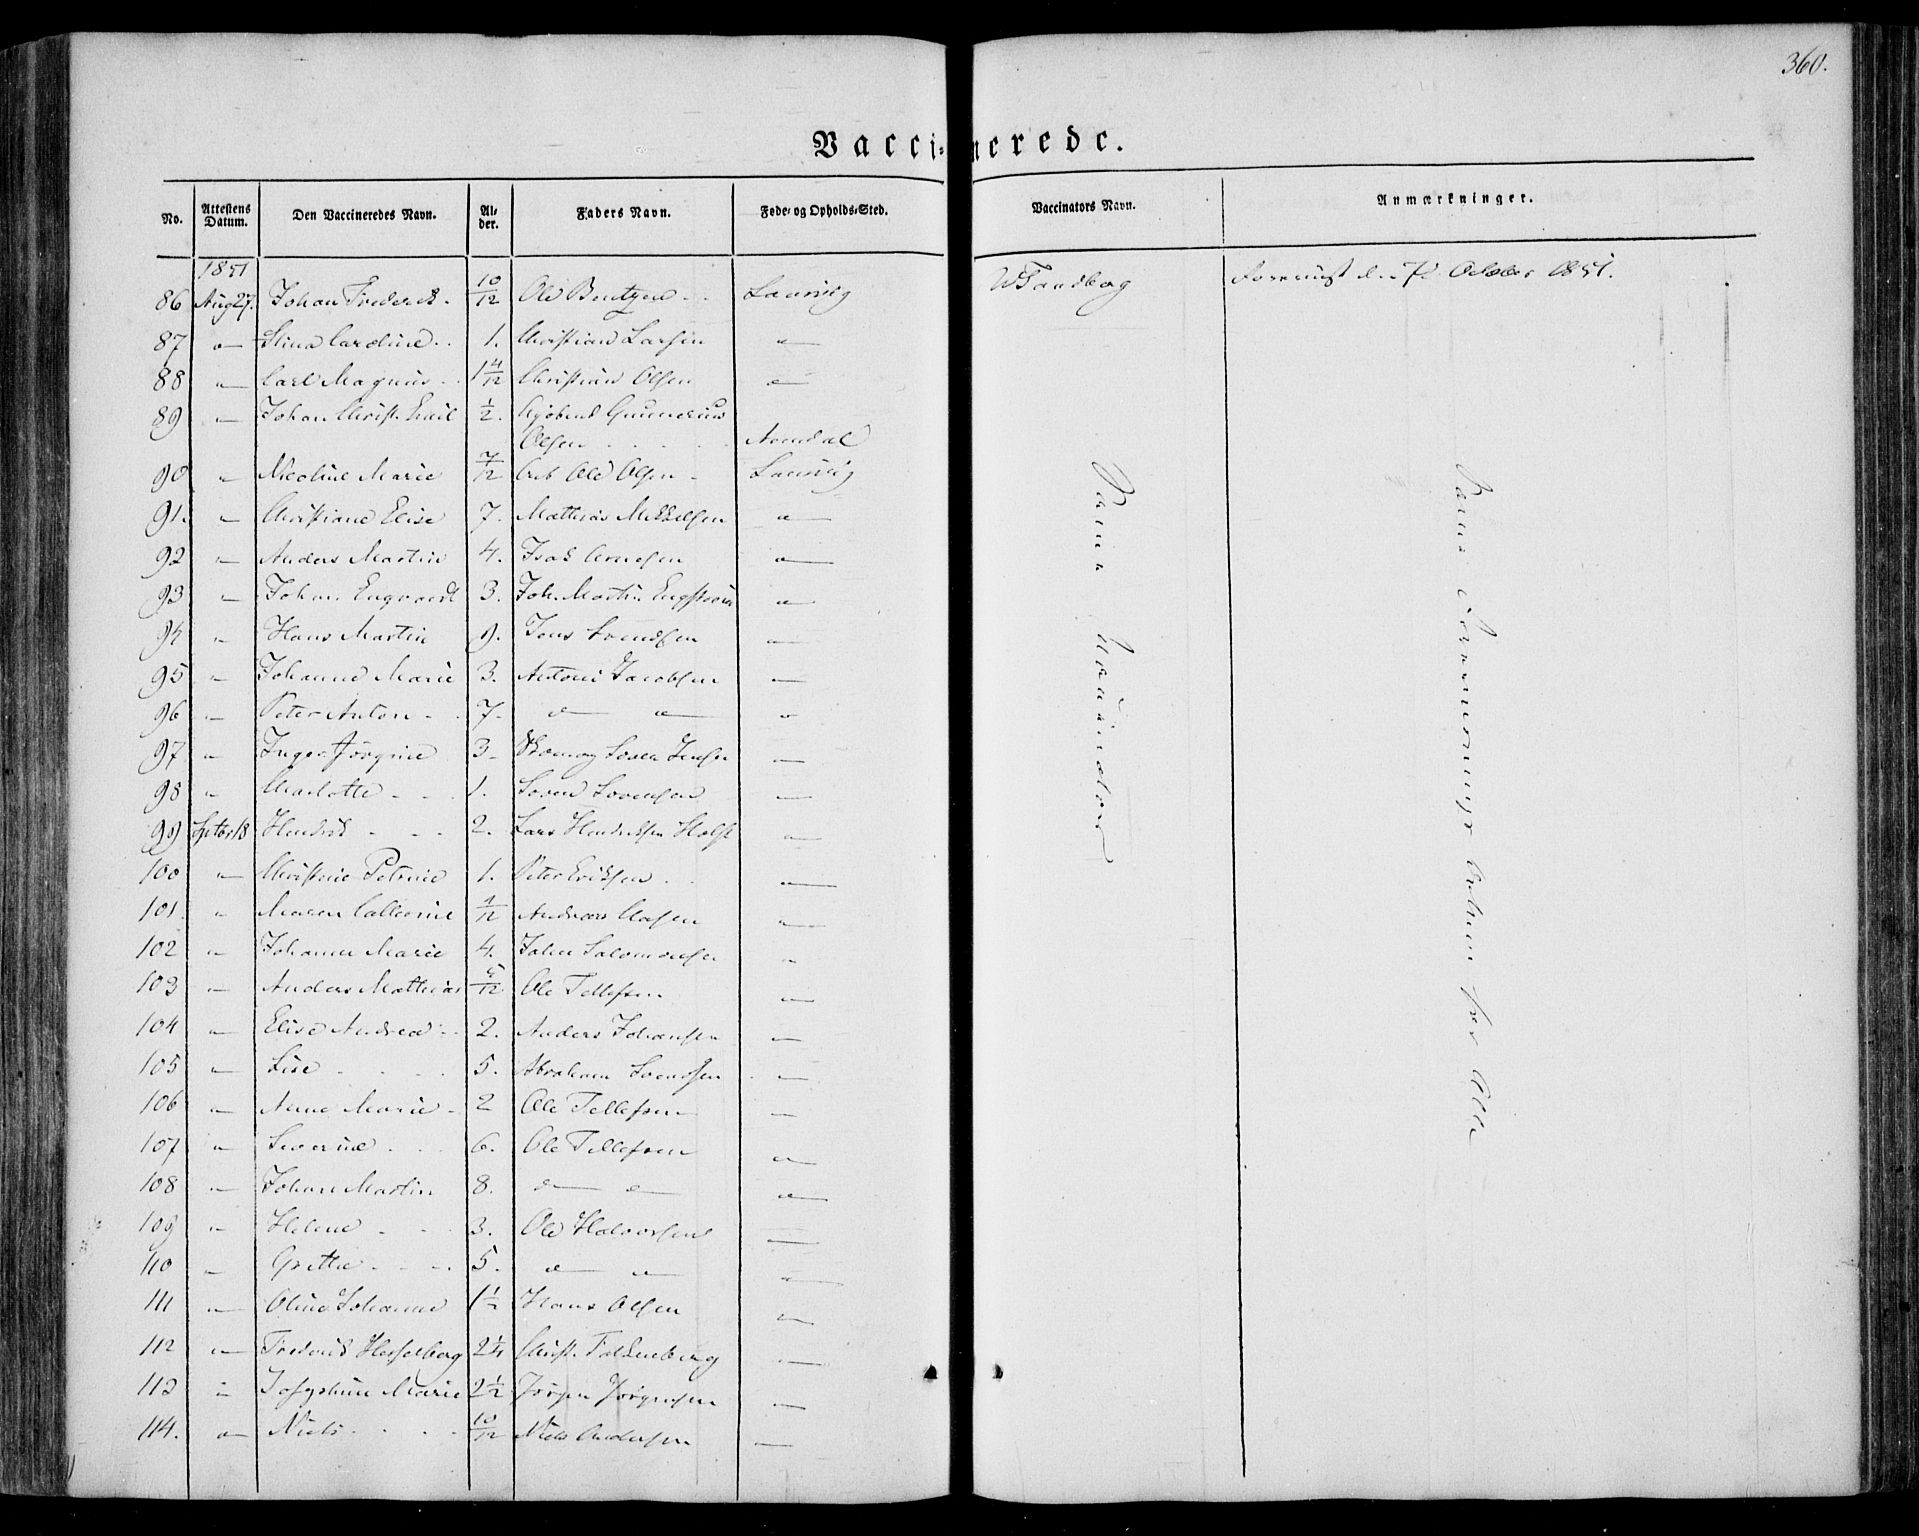 360.
Vaccinerede.
No. Attestens Datum. Den Vaccineredes Navn. Alder. Faders Navn. Føde- og Opholds-Sted. Vaccinators Navn. Anmærkninger.
1851
86 Aug 27. Johan Frederik 10/12 Ole Bentzen Laurvig Forevist d. 7 October 1851.
87 " Stina Caroline 1. Christian Larsen "
88 " Carl Magnus 1 4/12 Christian Olsen "
89 " Johan Christ. Emil 1/2. Gunnerius
Olsen Arendal
90 " Nicoline Marie 7/12 Arb. Ole Olsen Laurvig
91. " Christiane Elise 7. Mathias Mikkelsen "
92 " Anders Martin 4. Isak Arnesen "
93 " Johan Engvardt 3. Joh. Martin Engstrøm "
94 " Hans Martin 9. Jens Svendsen "
95 " Johanne Marie 3. Antoni Jacobsen "
96 " Peter Anton 7. " " "
97 " Inger Jørgine 3 Søren Jensen "
98 " Charlotte 1. Søren Sørensen "
99 Septbr 18 Hendrik 2. Lars Hendriksen Holst "
100 " Christine Petrine 1. Peter Eriksen "
101. " Maren Cathrine /12 Andreas Olsen "
102 " Johanne Marie 4. Johan Salomonsen "
103 " Anders Mathias 5/12 Ole Tellefsen "
104 " Elise Andrea 2. Anders Johansen "
105 " Lise 5. Abraham Svendsen "
106 " Anne Marie 2 Ole Tellefsen "
107 " Severine 6. Ole Tellefsen "
108 " Johan Martin 8. " " "
109 " Helene 3. Ole Halvorsen "
110 " Grethe 5. " " "
111 " Oline Johanne 1 1/2 Hans Olsen "
112 " Frederik Hesselberg 2 1/4 Christ. Falkenberg "
113 " Josephine Marie 2 1/2 Jørgen Jørgensen "
114. " Niels 10/12 Niels Andersen "
Samme
Samme for Alle